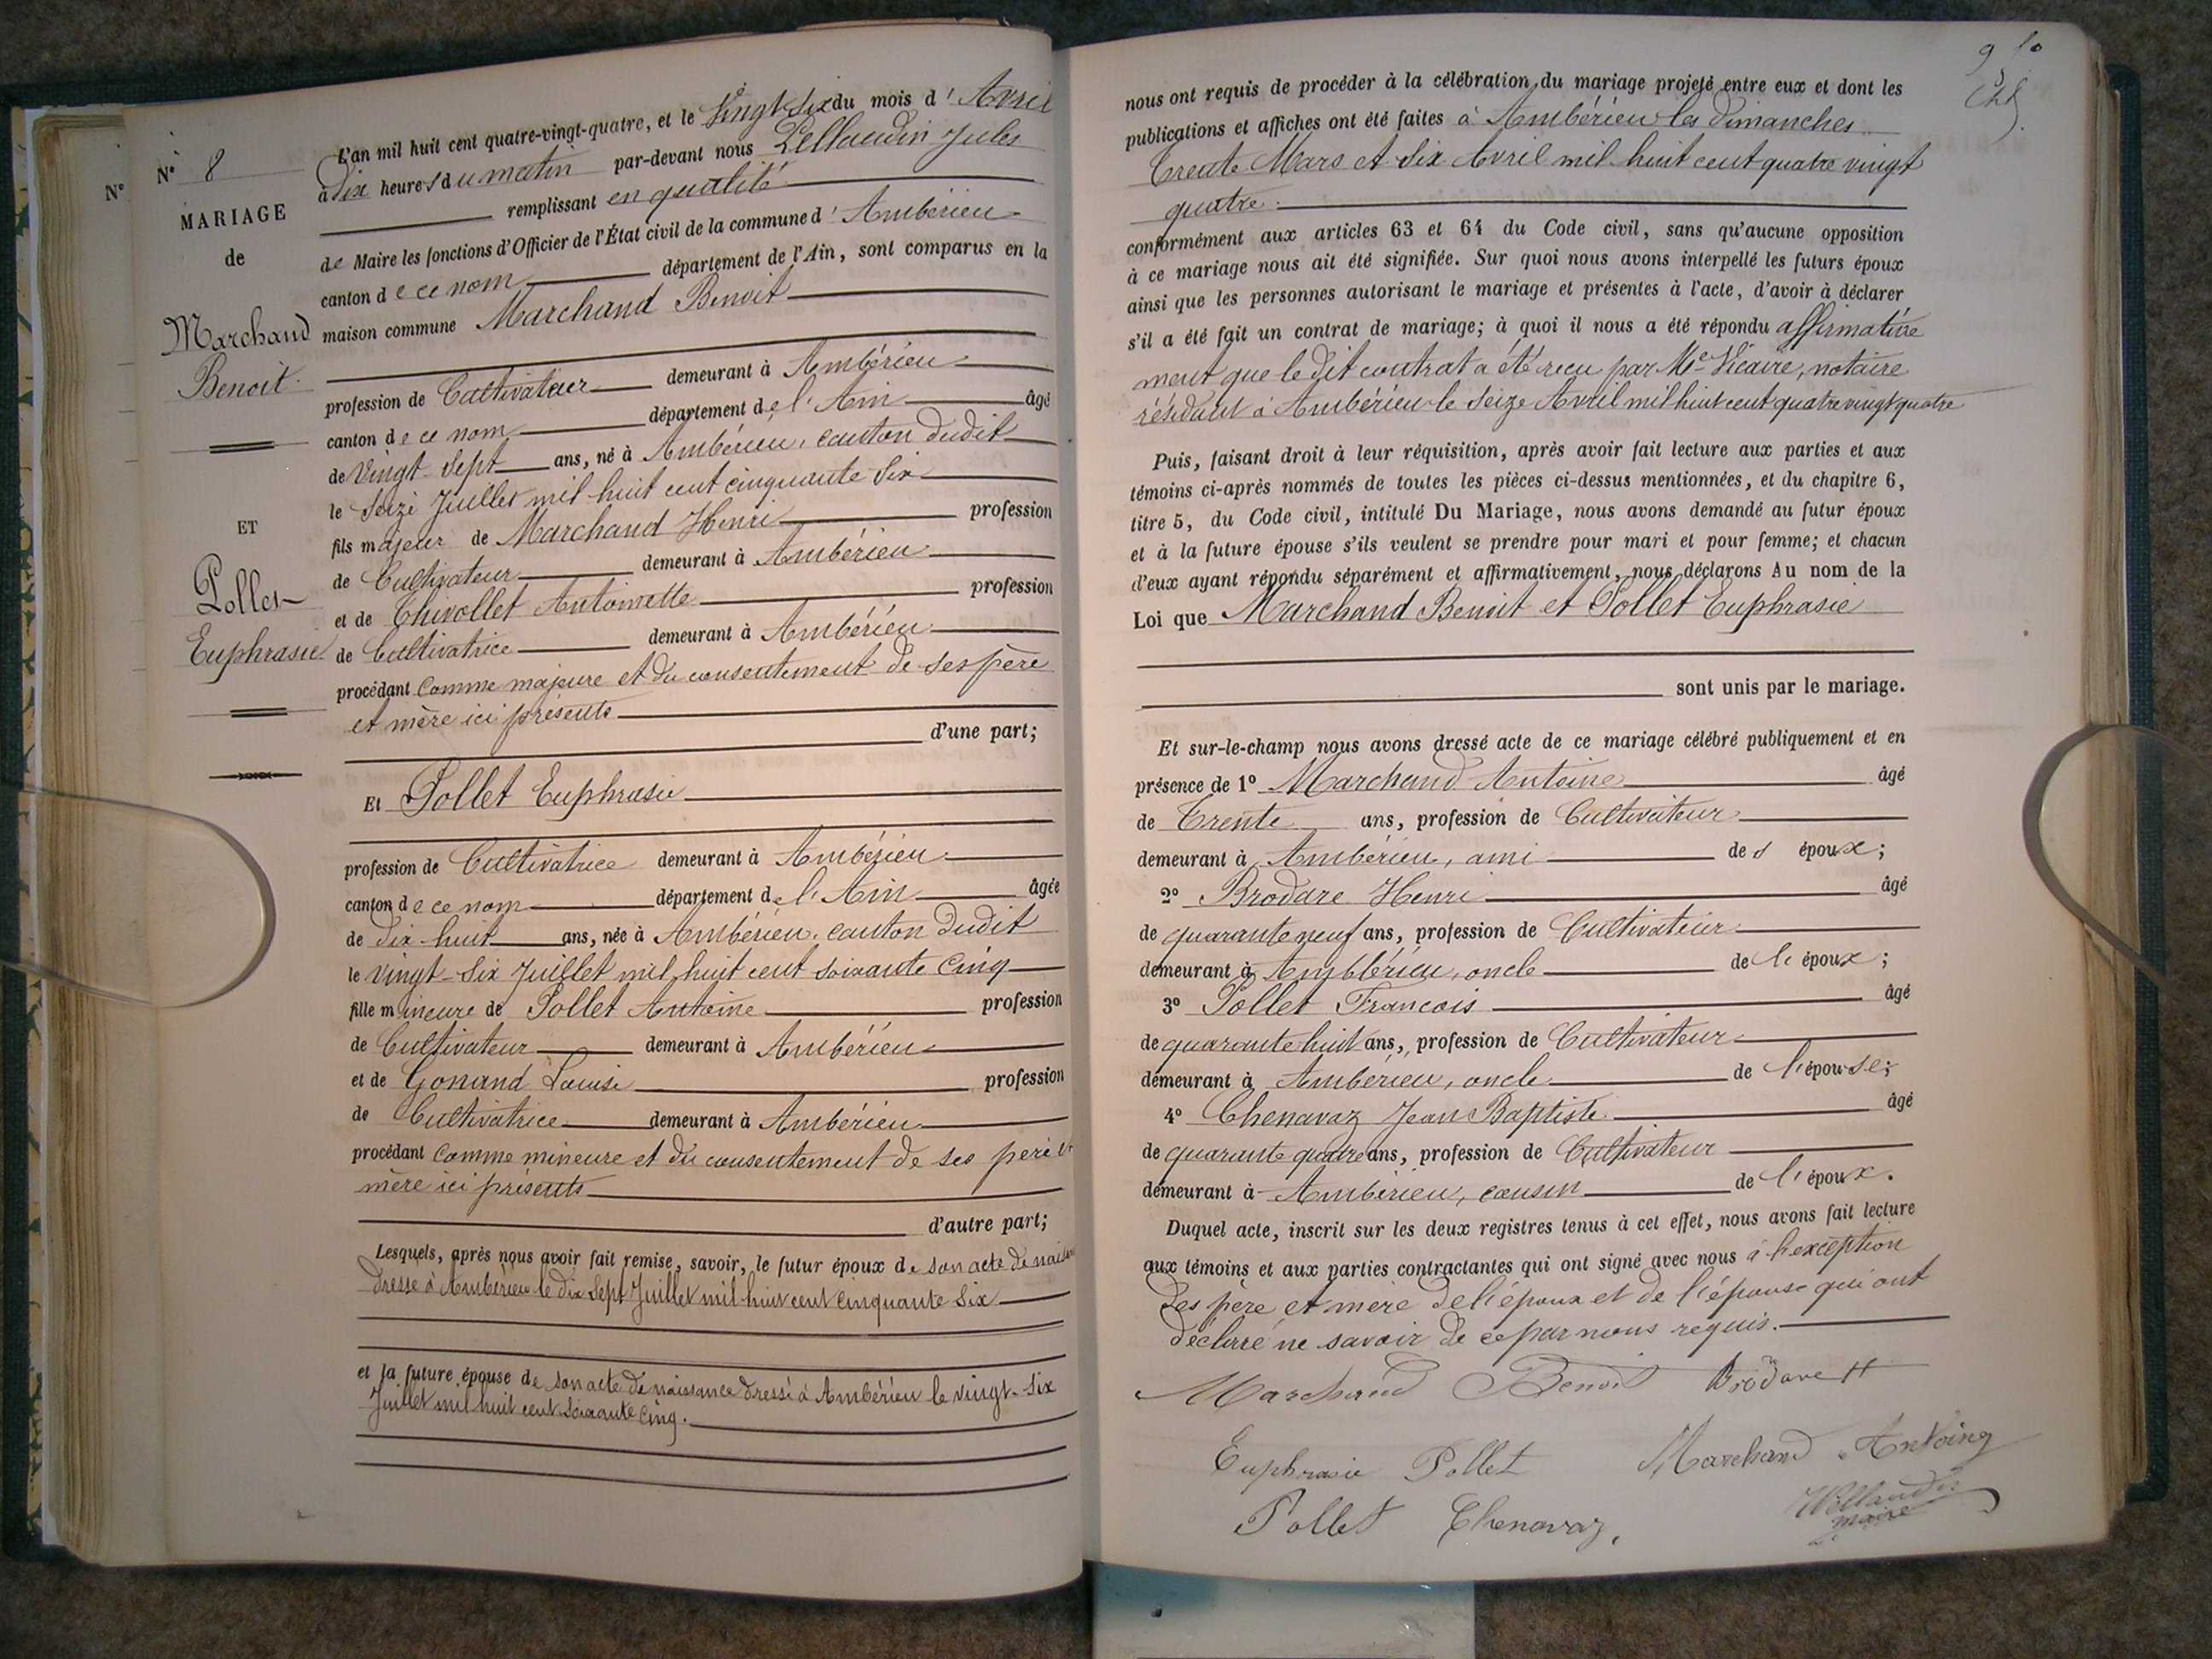 N°
N° 8
MARIAGE
de
Marchand
Benoit.
ET
Pollet
Euphrasie
L'an mil huit cent quatre-vingt-quatre, et le Vingt-Six du mois d'Avril
à Dix heures du matin par-devant nous Pellaudin Jules
remplissant en qualité
de Maire les fonctions d'Officier de l'État civil de la commune d'Ambérieu
canton de ce nom département de l'Ain, sont comparus en la
maison commune Marchand Benoit
profession de Cultivateur demeurant à Ambérieu
canton de ce nom département de l'Ain âgé
de Vingt-Sept ans, né à Ambérieu, canton dudit
le Seize Juillet mil huit cent cinquante Six
fils majeur de Marchand Henri profession
de Cultivateur demeurant à Ambérieu
et de Chivollet Antoinette profession
de Cultivatrice demeurant à Ambérieu
procédant comme majeure et du consentement de ses père
et mère ici présents
d'une part;
Et Pollet Euphrasie
profession de Cultivatrice demeurant à Ambérieu
canton de ce nom département de l'Ain âgée
de Dix-huit ans, née à Ambérieu, canton dudit
le Vingt-Six Juillet mil huit cent soixante Cinq
fille mineure de Pollet Antoine profession
de Cultivateur demeurant à Ambérieu
et de Gonand Louise profession
de Cultivatrice demeurant à Ambérieu
procédant comme mineure et du consentement de ses père et
mère ici présents
d'autre part;
Lesquels, après nous avoir fait remise, savoir, le futur époux de son acte de naissance
dressé à Ambérieu le dix Sept Juillet mil huit cent cinquante Six
et la future épouse de son acte de naissance dressé à Ambérieu le vingt-six
Juillet mil huit cent soixante cinq.
9
nous ont requis de procéder à la célébration du mariage projeté entre eux et dont les
publications et affiches ont été faites à Ambérieu les dimanches
Trente Mars et Six Avril mil huit cent quatre vingt
quatre.
conformément aux articles 63 et 64 du Code civil, sans qu'aucune opposition
à ce mariage nous ait été signifiée. Sur quoi nous avons interpellé les futurs époux
ainsi que les personnes autorisant le mariage et présentes à l'acte, d'avoir à déclarer
s'il a été fait un contrat de mariage; à quoi il nous a été répondu affirmative
ment que ledit contrat a été reçu par Me Vicaire, notaire
résidant à Ambérieu le Seize Avril mil huit cent quatre vingt quatre
Puis, faisant droit à leur réquisition, après avoir fait lecture aux parties et aux
témoins ci-après nommés de toutes les pièces ci-dessus mentionnées, et du chapitre 6,
titre 5, du Code civil, intitulé Du Mariage, nous avons demandé au futur époux
et à la future épouse s'ils veulent se prendre pour mari et pour femme; et chacun
d'eux ayant répondu séparément et affirmativement, nous déclarons Au nom de la
Loi que Marchand Benoit et Pollet Euphrasie
sont unis par le mariage.
Et sur-le-champ nous avons dressé acte de ce mariage célébré publiquement et en
présence de 1° Marchand Antoine âgé
de Trente ans, profession de Cultivateur
demeurant à Ambérieu, ami des époux;
2° Brodare Henri âgé
de quarante neuf ans, profession de Cultivateur
demeurant à Ambérieu, oncle de l'époux;
3° Pollet Francois âgé
de quarante huit ans, profession de Cultivateur
demeurant à Ambérieu, oncle de l'épouse;
4° Chenavaz Jean Baptiste âgé
de quarante quatre ans, profession de Cultivateur
demeurant à Ambérieu, cousin de l'époux.
Duquel acte, inscrit sur les deux registres tenus à cet effet, nous avons fait lecture
aux témoins et aux parties contractantes qui ont signé avec nous à l'exception
des père et mère de l'époux et de l'épouse qui ont
déclaré ne savoir de ce par nous requis.
Marchand Benoit Brodare H
Euphrasie Pollet Marchand Antoine
Pollet Chenavaz,
maire